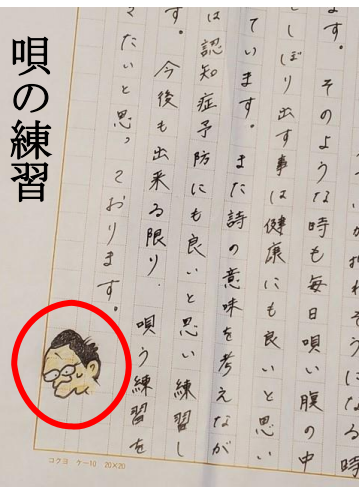 唄の練習
が折れそうになる時
す。そのような時も毎日唄い腹の中
しぼり出す事は健康にも良いと思い
ています。また詩の意味を考えなが
は認知症予防にも良いと思い練習し
す。今後も出来る限り、唄う練習を
たいと思っております。
コクヨ ケー10 20×20